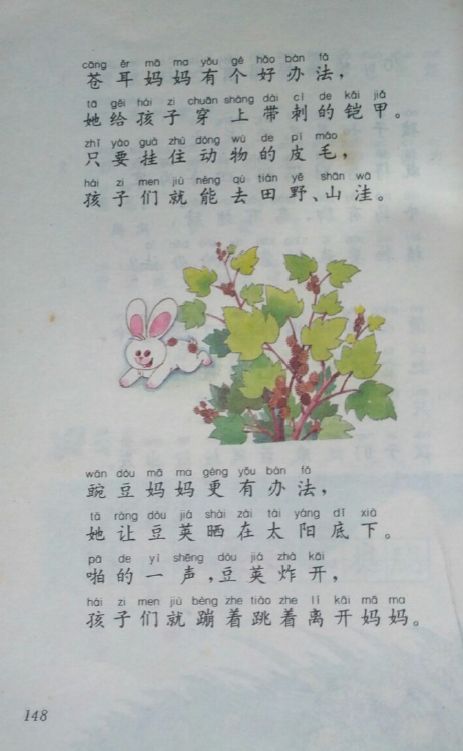 cāng ěr mā ma yǒu gè hǎo bàn fǎ
苍耳妈妈有个好办法，
tā gěi hái zi chuān shàng dài cì de kǎi jiǎ
她给孩子穿上带刺的铠甲。
zhǐ yào guà zhù dòng wù de pí máo
只要挂住动物的皮毛，
hái zi men jiù néng qù tián yě shān wā
孩子们就能去田野、山洼。
wān dòu mā ma gèng yǒu bàn fǎ
豌豆妈妈更有办法，
tā ràng dòu jiá shài zài tài yáng dǐ xià
她让豆荚晒在太阳底下。
pā de yì shēng dòu jiá zhà kāi
啪的一声，豆荚炸开，
hái zi men jiù bèng zhe tiào zhe lí kāi mā ma
孩子们就蹦着跳着离开妈妈。
148